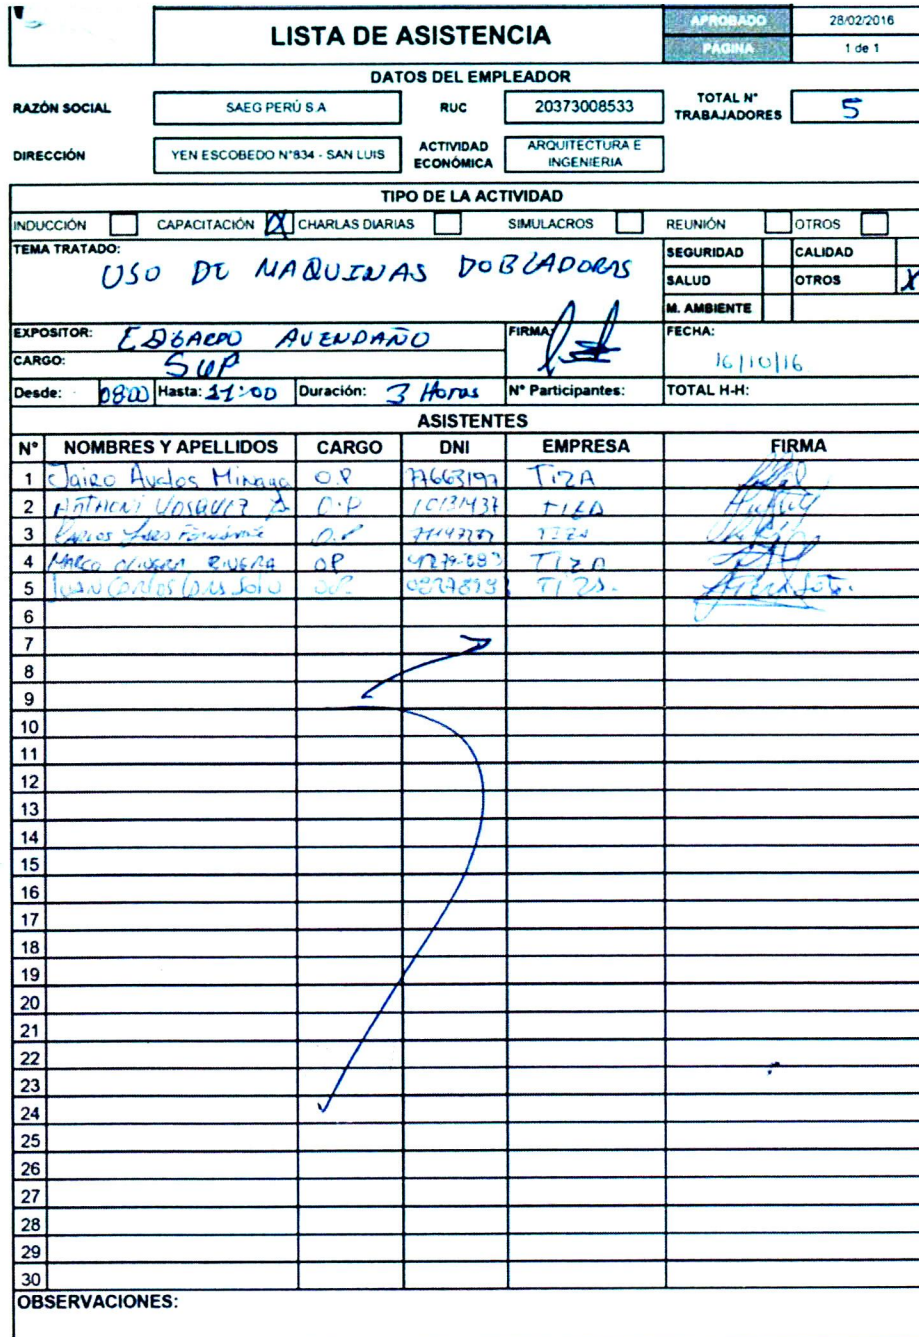 LISTA DE ASISTENCIA
APROBADO 28/02/2016
PÁGINA 1 de 1
DATOS DEL EMPLEADOR
RAZÓN SOCIAL SAEG PERÚ S.A RUC 20373008533 TOTAL N° TRABAJADORES 5
DIRECCIÓN YEN ESCOBEDO N°834 - SAN LUIS ACTIVIDAD ECONÓMICA ARQUITECTURA E INGENIERIA
TIPO DE LA ACTIVIDAD
INDUCCIÓN CAPACITACIÓN X CHARLAS DIARIAS SIMULACROS REUNIÓN OTROS
TEMA TRATADO: USO DE MAQUINAS DOBLADORAS
SEGURIDAD CALIDAD
SALUD OTROS X
M. AMBIENTE
EXPOSITOR: EDGARDO AVENDAÑO FIRMA: FECHA: 16/10/16
CARGO: SUP
Desde: 08:00 Hasta: 11:00 Duración: 3 Horas N° Participantes: TOTAL H-H:
ASISTENTES
N° NOMBRES Y APELLIDOS CARGO DNI EMPRESA FIRMA
1 Jairo Avalos O.P TIZA
2 ANTHONI O.P TIZA
3 CARLOS O.P TIZA
4 MARCO OLIVERA RIVERA OP TIZA
5 JUAN CARLOS O.P. TIZA.
6
7
8
9
10
11
12
13
14
15
16
17
18
19
20
21
22
23
24
25
26
27
28
29
30
OBSERVACIONES: